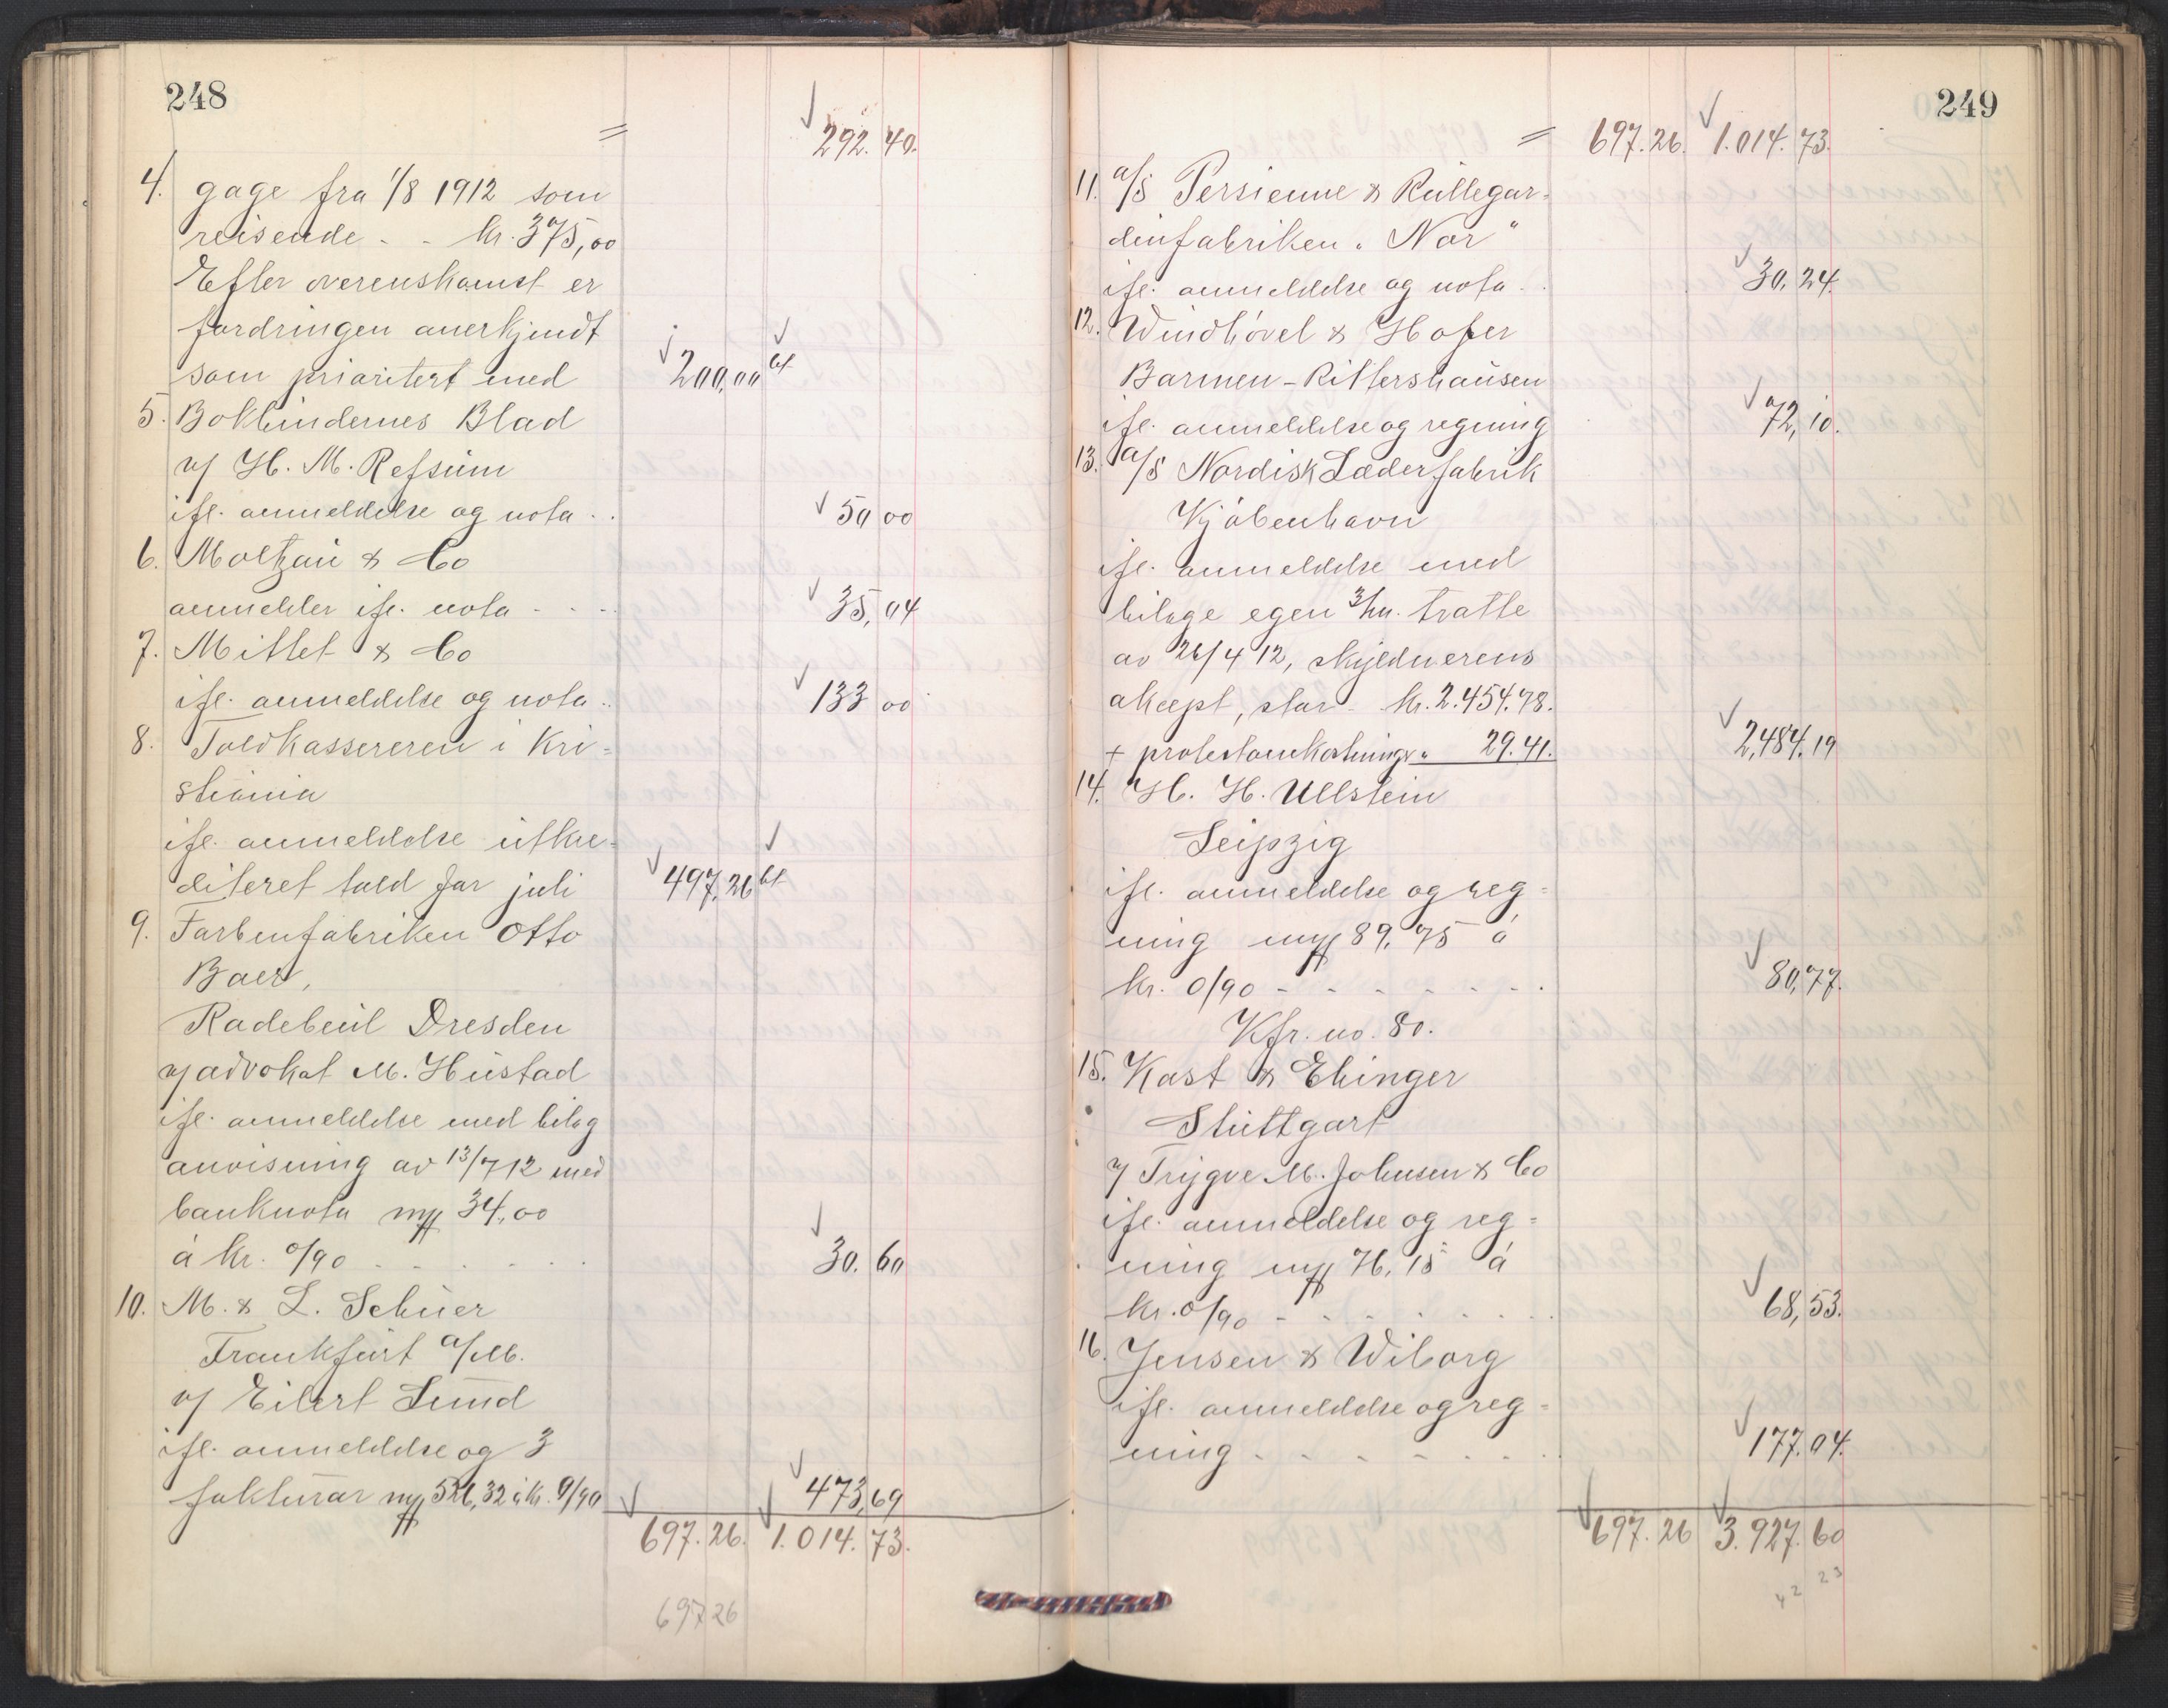 248
= 292.40.
4. gage fra 1/8 1912 som
reisende - - kr. 375,00
Efter overenskomst er
fordringen anerkjendt
som prioritert med 200,00 bt
5. Bokbindernes Blad
v/ H. M. Refsum
ifl. anmeldelse og nota . . 50 00
6. Moltzau & Co
anmelder ifl. nota - - - 35,04
7. Mittet & Co
ifl. anmeldelse og nota . . 133 00
8. Toldkassereren i Kri=
stiania
ifl. anmeldelse utkre=
diteret told for juli 497,26 bt
9. Farbenfabriken Otto
Baer,
Radebeul Dresden
v/ advokat M. Hustad
ifl. anmeldelse med bilag
anvisning av 13/7 12 med
banknota my 34,00
à kr. 0/90 - - - - - - 30.60
10. M. & L. Schuer
Frankfurt a/M.
v/ Eilert Lund
ifl. anmeldelse og 3
fakturar my 526,32 à kr. 0/90 473,69
697.26. 1.014.73.
697 26
249
= 697.26. 1.014.73.
11. a/s Persienne & Rullegar=
dinfabriken „Nor"
ifl. anmeldelse og nota . . 30,24.
12. Windhövel & Hofer
Barmen-Rittershausen
ifl. anmeldelse og regning 72,10.
13. a/s Nordisk Læderfabrik
Kjøbenhavn
ifl. anmeldelse med
bilage egen 3/m. tratte
av 26/4 12, skyldnerens
aksept, stor kr. 2.454.78.
+ protestomkostninger " 29.41. 2,484.19
14. H. H. Ullstein
Leipzig
ifl. anmeldelse og reg=
ning my 89,75 à
kr. 0/90 - - - - - - - 80,77.
Kfr. no. 80.
15. Kast & Ehinger
Stuttgart
v/ Trygve M. Johnsen & Co
ifl. anmeldelse og reg=
ning my 76,15 à
kr. 0/90 - - - - - - - 68,53.
16. Jensen & Wiborg
ifl. anmeldelse og reg=
ning - - - - - - - 177.04.
697.26 3.927.60
42 23